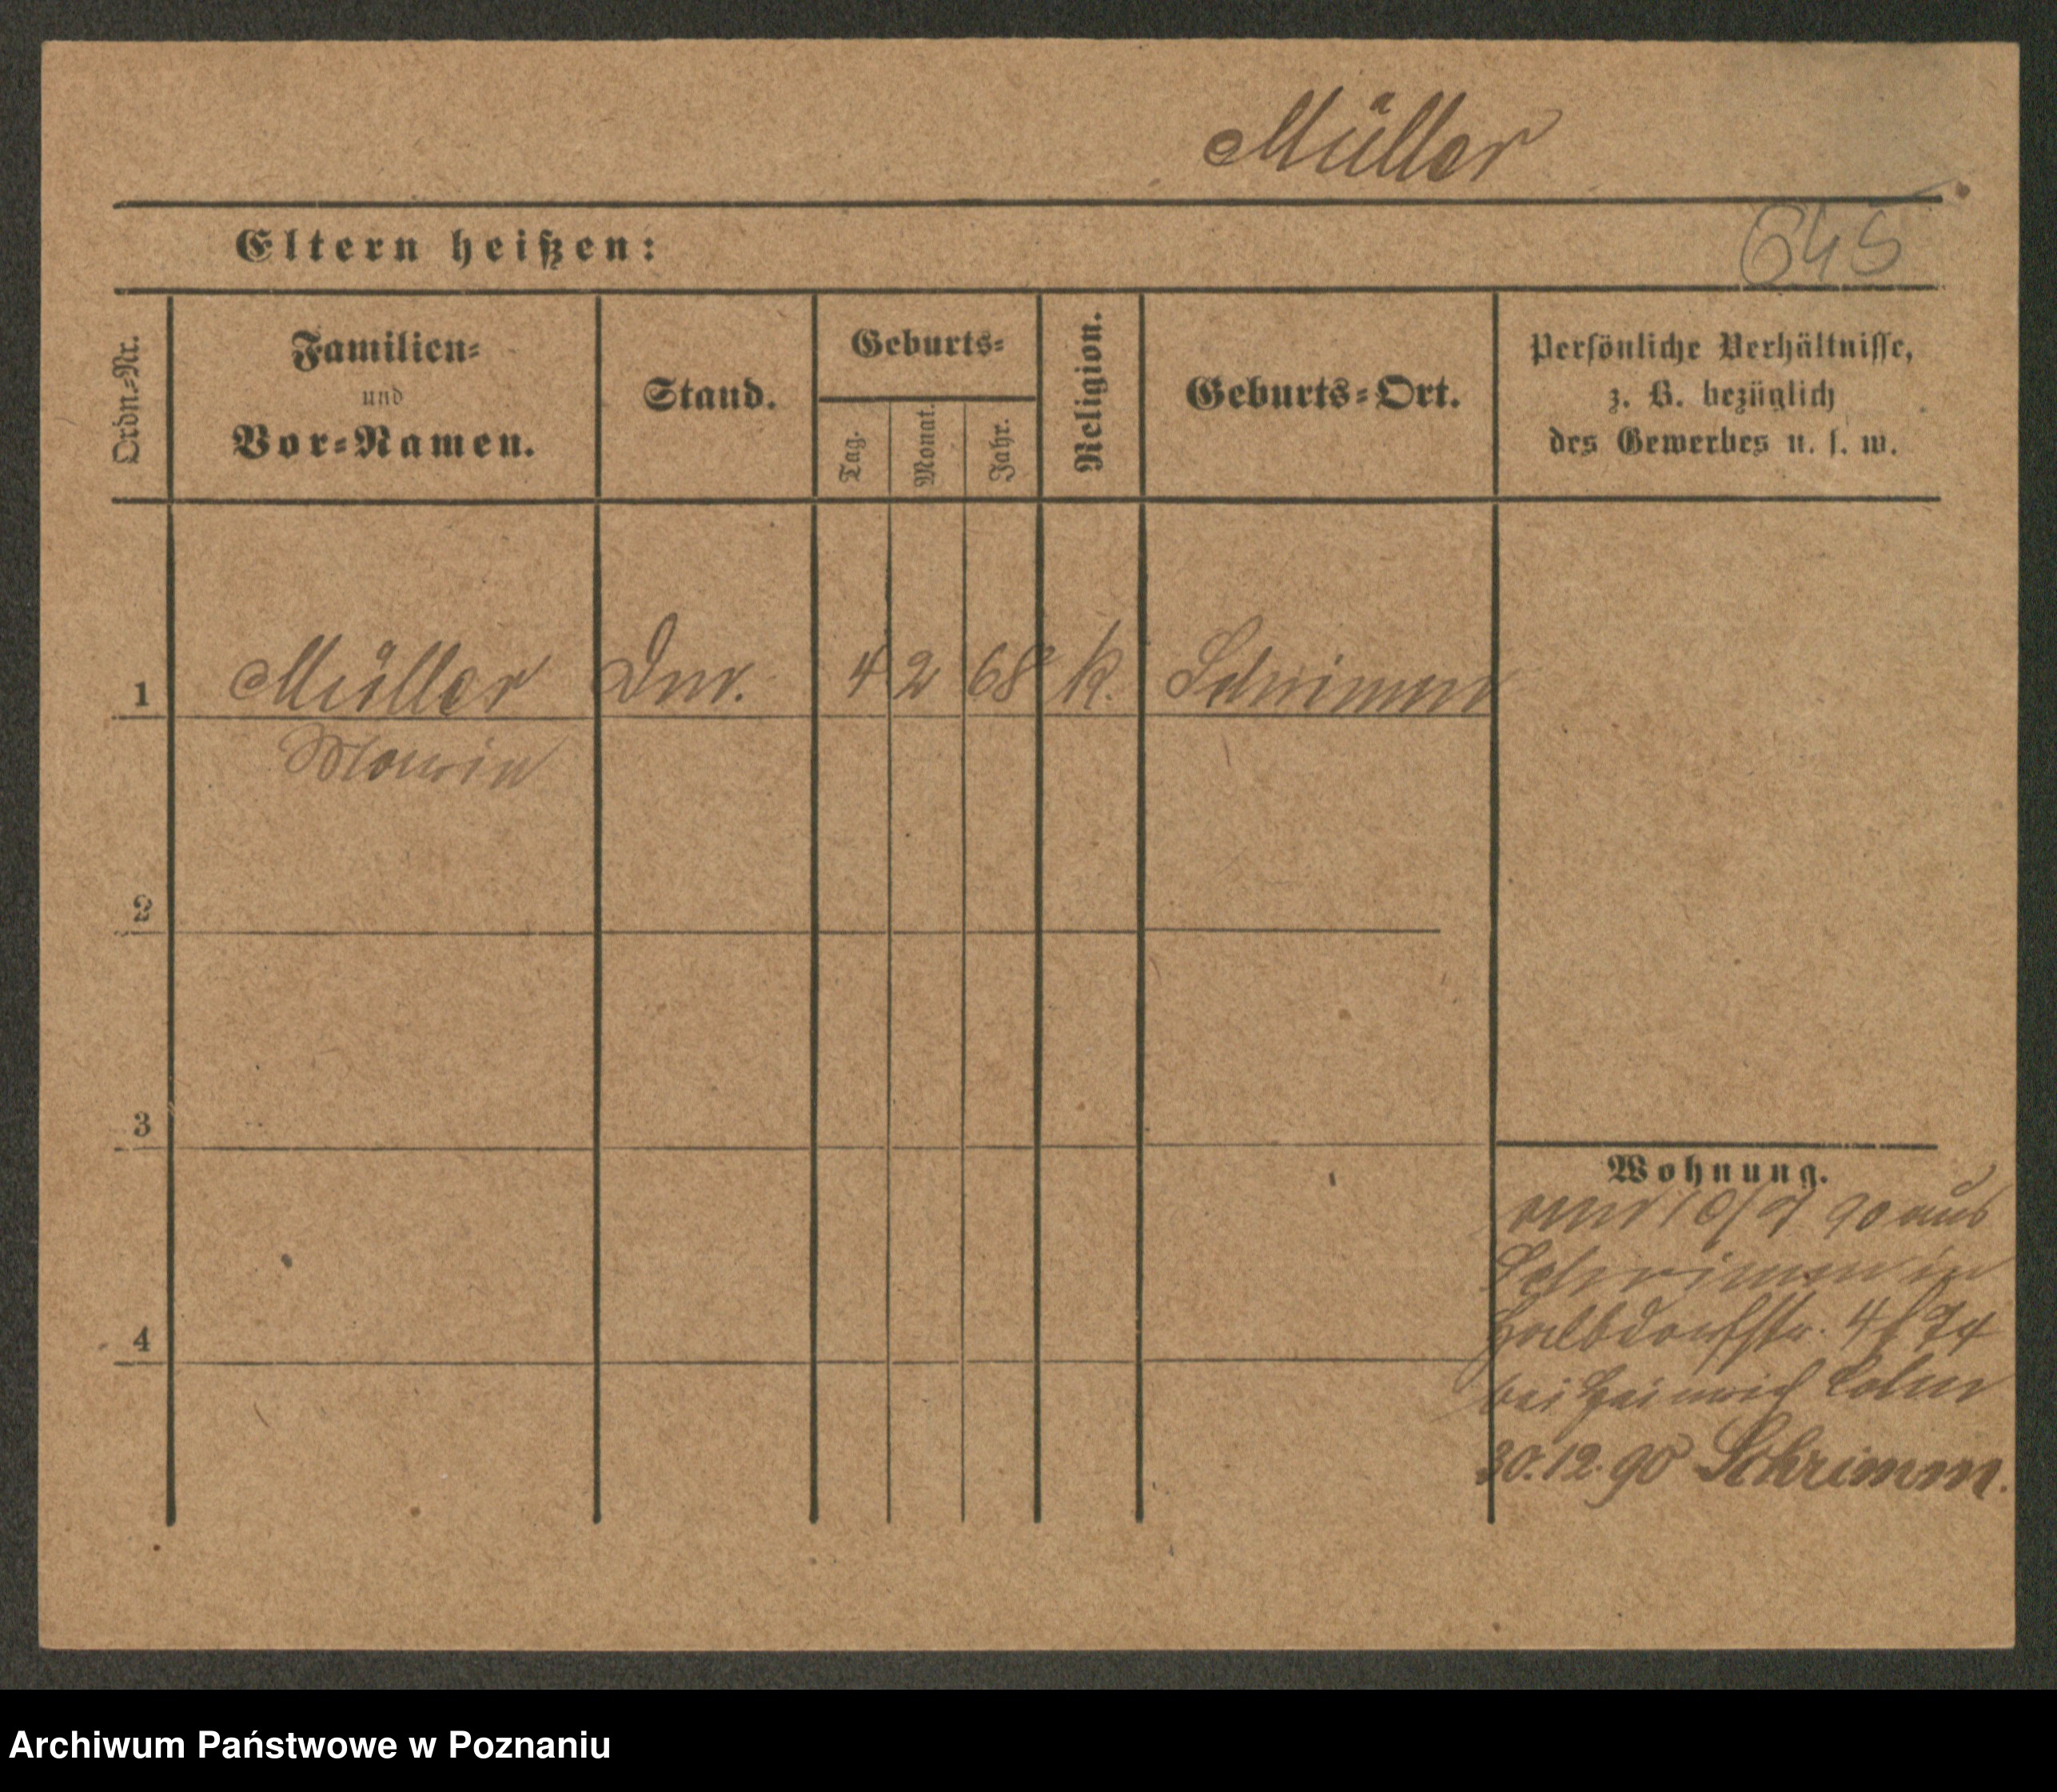 Müller
Eltern heißen:
645
Ordn.=Nr.
Familien=
und
Vor=Namen.
Stand.
Geburts=
Tag.
Monat.
Jahr.
Religion.
Geburts=Ort.
Persönliche Verhältnisse,
z. B. bezüglich
des Gewerbes u. s. w.
1
Müller
4
2
68
k.
Schrimm
2
3
4
Wohnung.
90 aus
Schrimm in
Halbdorfstr. 4
bei Heinrich
30.12.90 Schrimm.
Archiwum Państwowe w Poznaniu